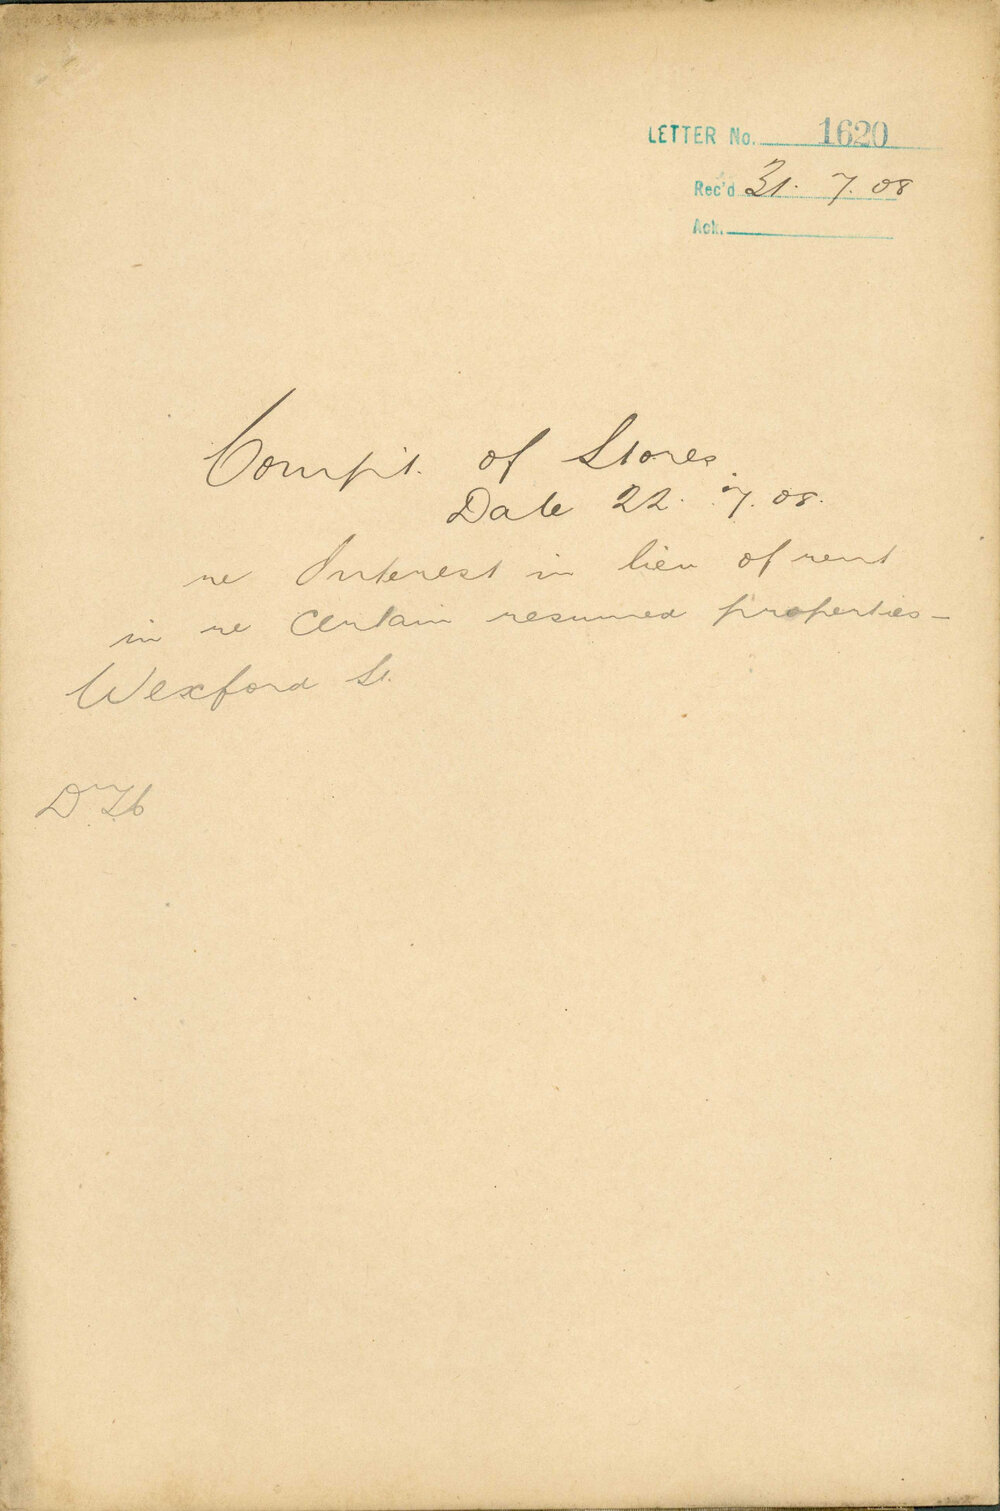 LETTER No. 1620
Rec'd 31. 7. 08
Ack.
Compt. of Stores.
Date 22. 7. 08.
re Interest in lieu of rent
in re certain resumed properties—
Wexford St.